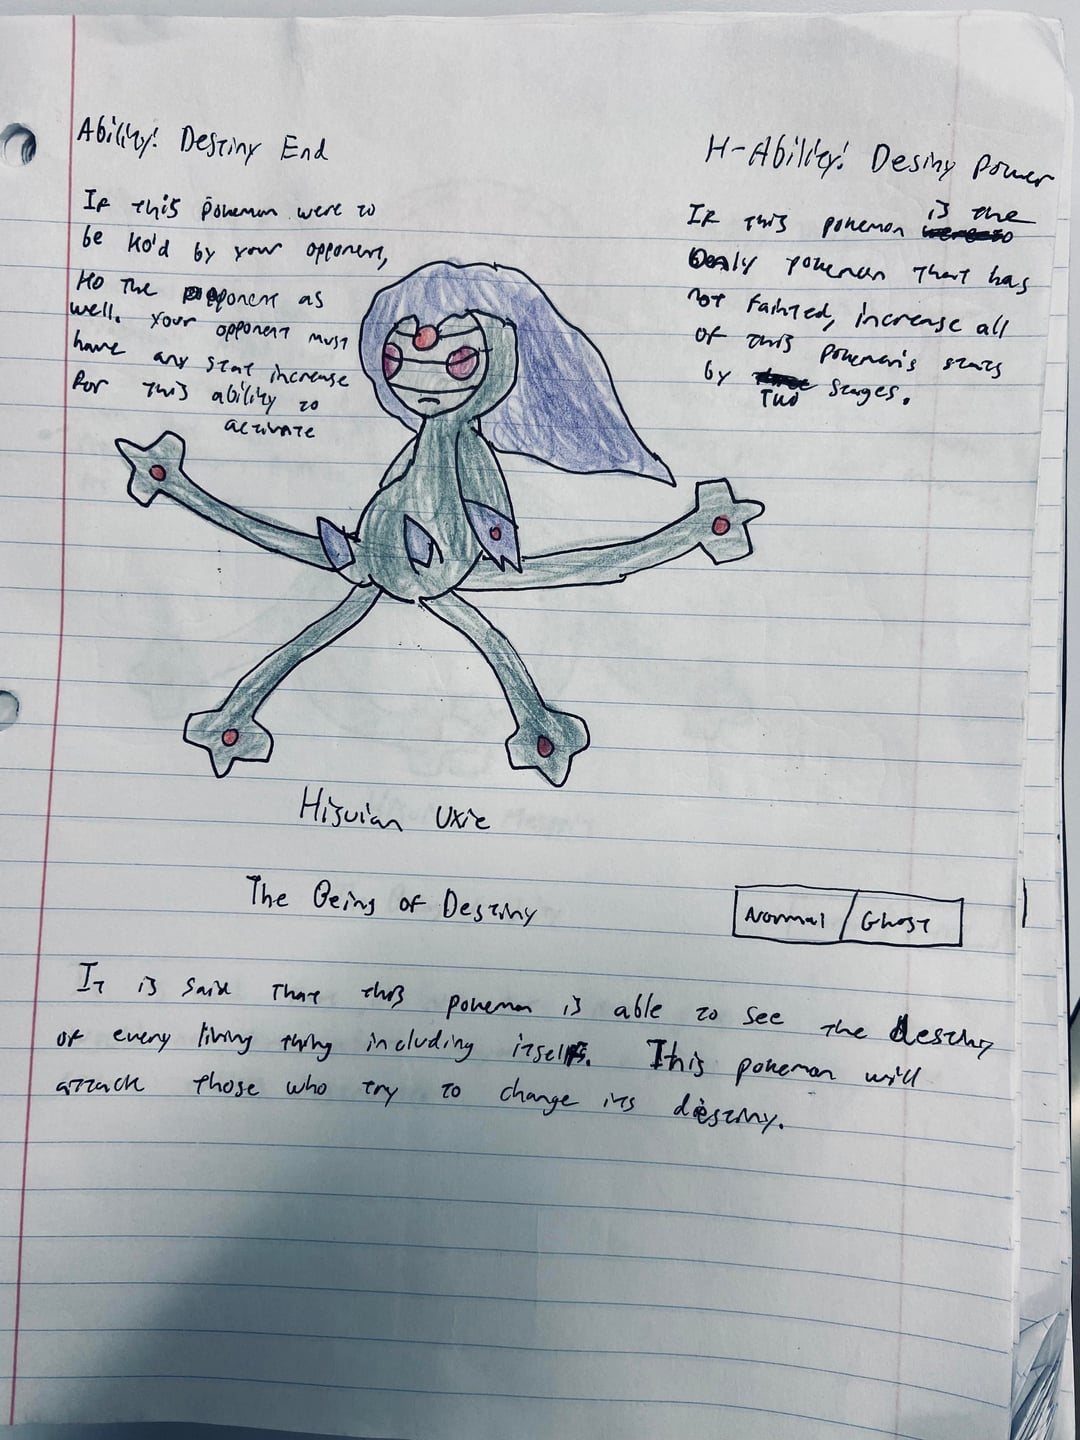 Ability: Destiny End
If this pokemon were to
be KO'd by your opponent,
KO the opponent as
well. Your opponent must
have any stat increase
for this ability to
activate
H-Ability: Desiny Power
If this pokemon is the
only pokemon that has
not fainted, increase all
of this pokemon's stats
by Two stages.
Hisuian Uxie
The Being of Destiny
Normal / Ghost
It is said that this pokemon is able to see the destiny
of every living thing including itself. This pokemon will
attack those who try to change its destiny.